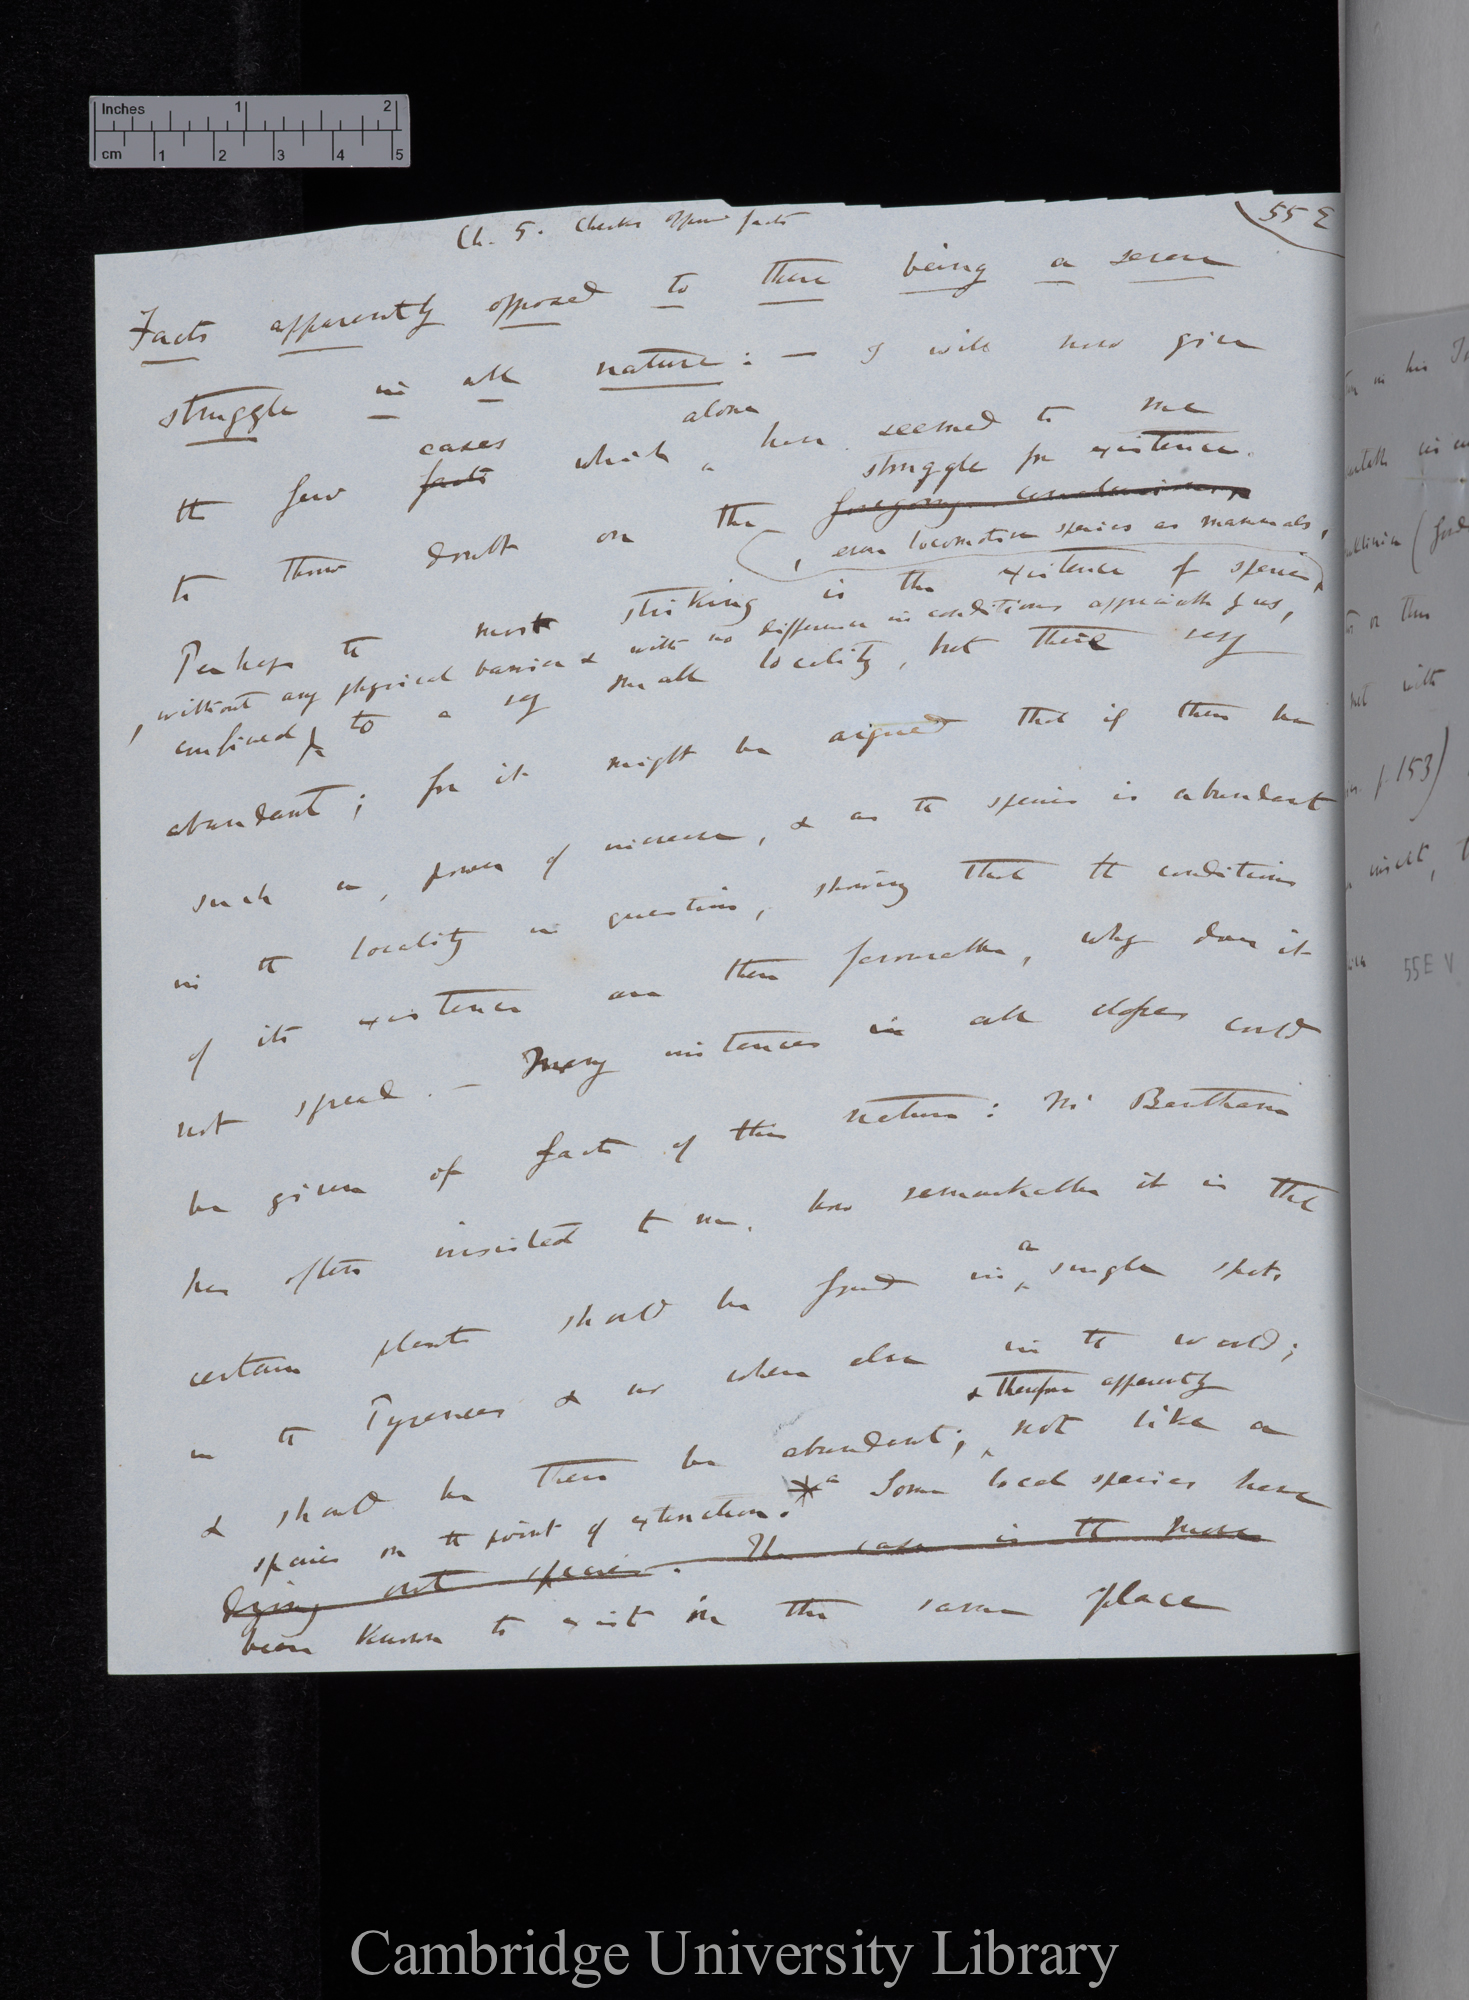 Inches 1 2
cm 1 2 3 4 5
Ch. 5. Checks oppose facts
55 E
Facts apparently opposed to there being a severe
struggle in all nature: — I will now give
cases alone
the few facts which have seemed to me
struggle for existence.
to throw doubt on the foregoing conclusions
, even locomotive species as mammals,
Perhaps the most striking is the existence of species,
, without any physical barrier & with no difference in conditions appreciable by us,
confined to a very small locality, but there very
abundant; for it might be argued that if there be
such a, power of increase, & as the species is abundant
in the locality in question, showing that the conditions
of its existence are there favourable, why does it
not spread. — Many instances in all classes could
be given of facts of this nature: Mr Bentham
has often insisted to me. how remarkable it is that
certain plants should be found in a single spot,
in the Pyrenees & no where else in the world;
& therefore apparently
& should be there be abundant; not like a
species on the point of extinction. * a Some local species have
dying out species. The case is the more
been known to exist in the same place
in his
(
on this
not with
p. 153)
insect,
55E V
Cambridge University Library